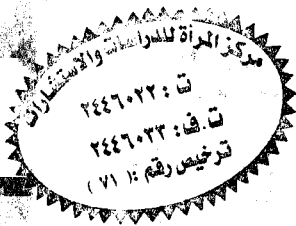 مركز المرأة للدراسات والاستشارات
ت : ٢٤٤٦٠٢٢
ت.ف : ٢٤٤٦٠٣٣
ترخيص رقم :( ٧١ )